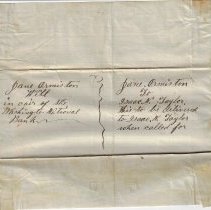 Jane Ormiston
Will
in care of the
Washington National
Bank
Jane Ormiston
To
Isaac N. Taylor.
This to be delivered
to Isaac N. Taylor
when called for